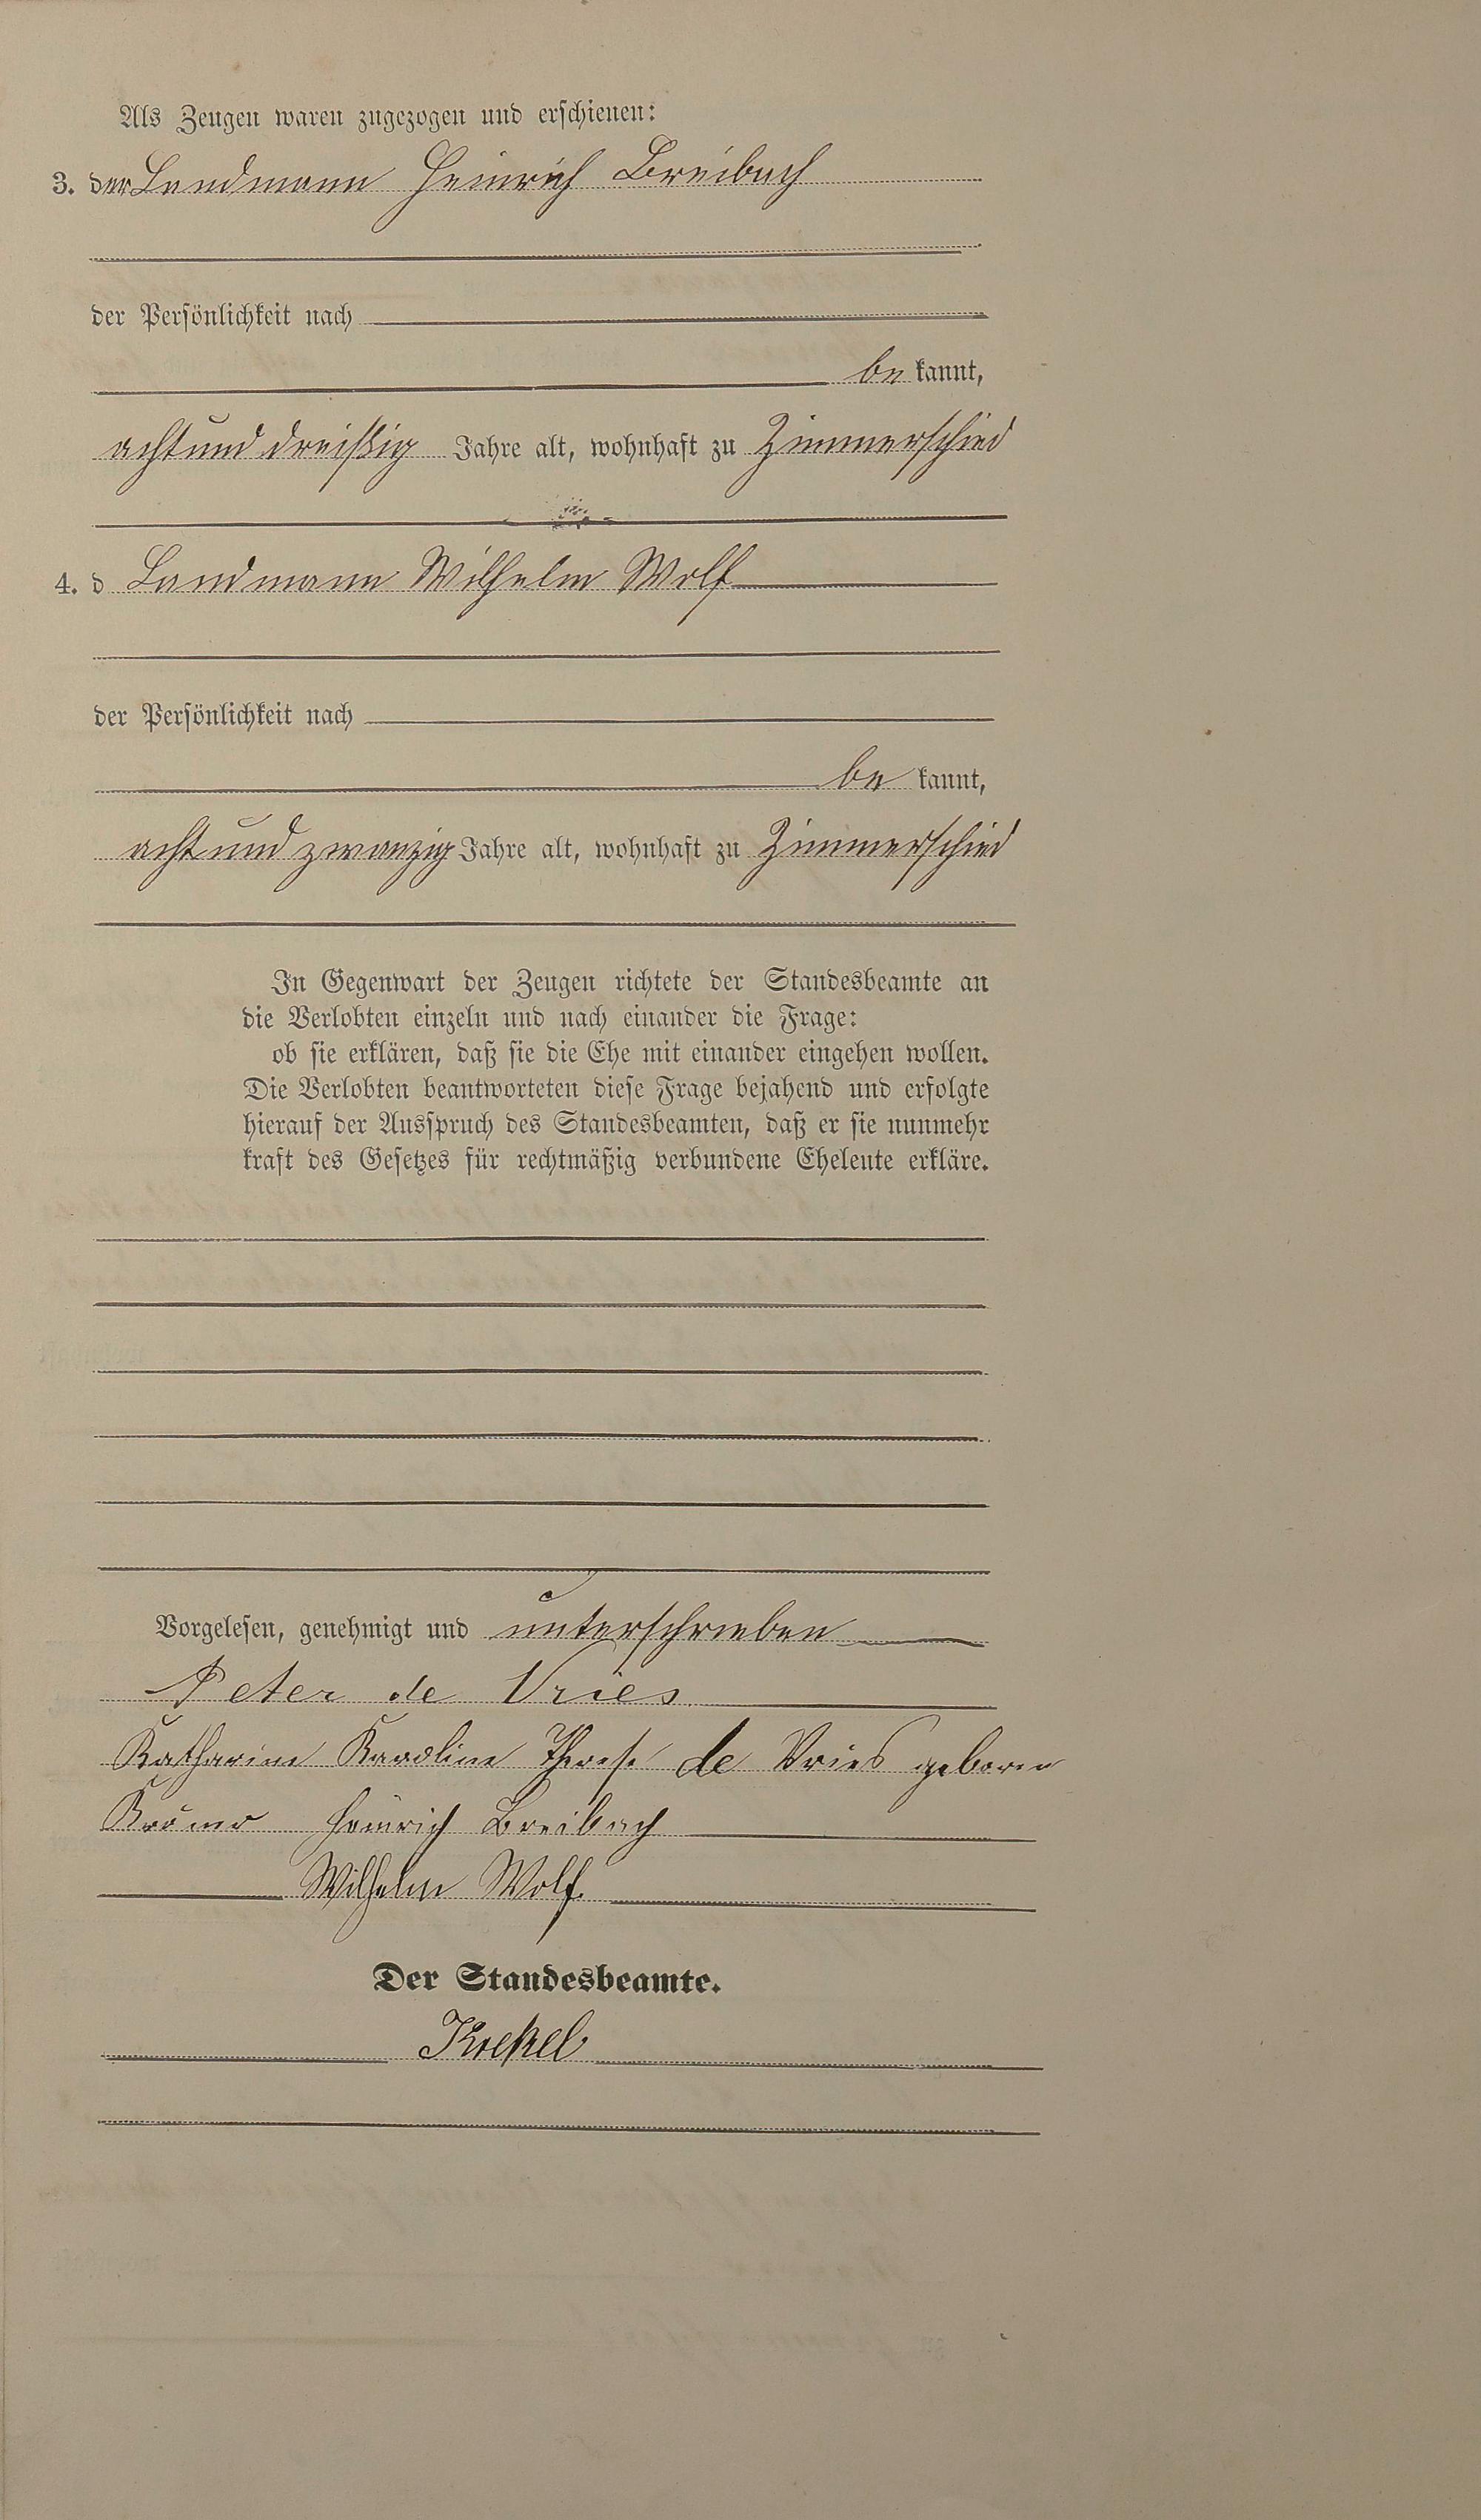 Als Zeugen waren zugezogen und erschienen:
3. der Landmann Heinrich Breibach
der Persönlichkeit nach
be kannt,
acht und dreißig Jahre alt, wohnhaft zu Zimmerschied
4. d Landmann Wilhelm Wolf
der Persönlichkeit nach
be kannt,
acht und zwanzig Jahre alt, wohnhaft zu Zimmerschied
In Gegenwart der Zeugen richtete der Standesbeamte an
die Verlobten einzeln und nach einander die Frage:
ob sie erklären, daß sie die Ehe mit einander eingehen wollen.
Die Verlobten beantworteten diese Frage bejahend und erfolgte
hierauf der Ausspruch des Standesbeamten, daß er sie nunmehr
kraft des Gesetzes für rechtmäßig verbundene Eheleute erkläre.
Vorgelesen, genehmigt und unterschrieben
Peter de Vries
Katharine Karoline Therese de Vries geboren
Heinrich Breibach
Wilhelm Wolf.
Der Standesbeamte.